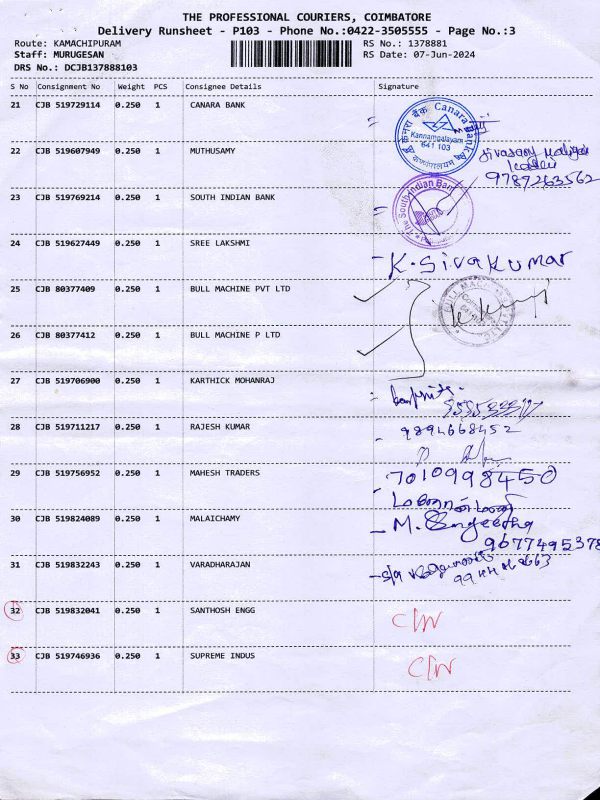 THE PROFESSIONAL COURIERS, COIMBATORE
Delivery Runsheet - P103 - Phone No.:0422-3505555 - Page No.:3
Route: KAMACHIPURAM RS No.: 1378881
Staff: MURUGESAN RS Date: 07-Jun-2024
DRS No.: DCJB137888103
S No Consignment No Weight PCS Consignee Details Signature
21 CJB 519729114 0.250 1 CANARA BANK
Canara Bank
केनरा बैंक
Kannampalayam
641 103
22 CJB 519607949 0.250 1 MUTHUSAMY
9787263562
23 CJB 519769214 0.250 1 SOUTH INDIAN BANK
The South Indian Bank
24 CJB 519627449 0.250 1 SREE LAKSHMI
K. Sivakumar
25 CJB 80377409 0.250 1 BULL MACHINE PVT LTD
26 CJB 80377412 0.250 1 BULL MACHINE P LTD
27 CJB 519706900 0.250 1 KARTHICK MOHANRAJ
28 CJB 519711217 0.250 1 RAJESH KUMAR
9894668452
29 CJB 519756952 0.250 1 MAHESH TRADERS
7010998450
30 CJB 519824089 0.250 1 MALAICHAMY
M. Sangeetha
9677495378
31 CJB 519832243 0.250 1 VARADHARAJAN
32 CJB 519832041 0.250 1 SANTHOSH ENGG
C/N
33 CJB 519746936 0.250 1 SUPREME INDUS
C/N